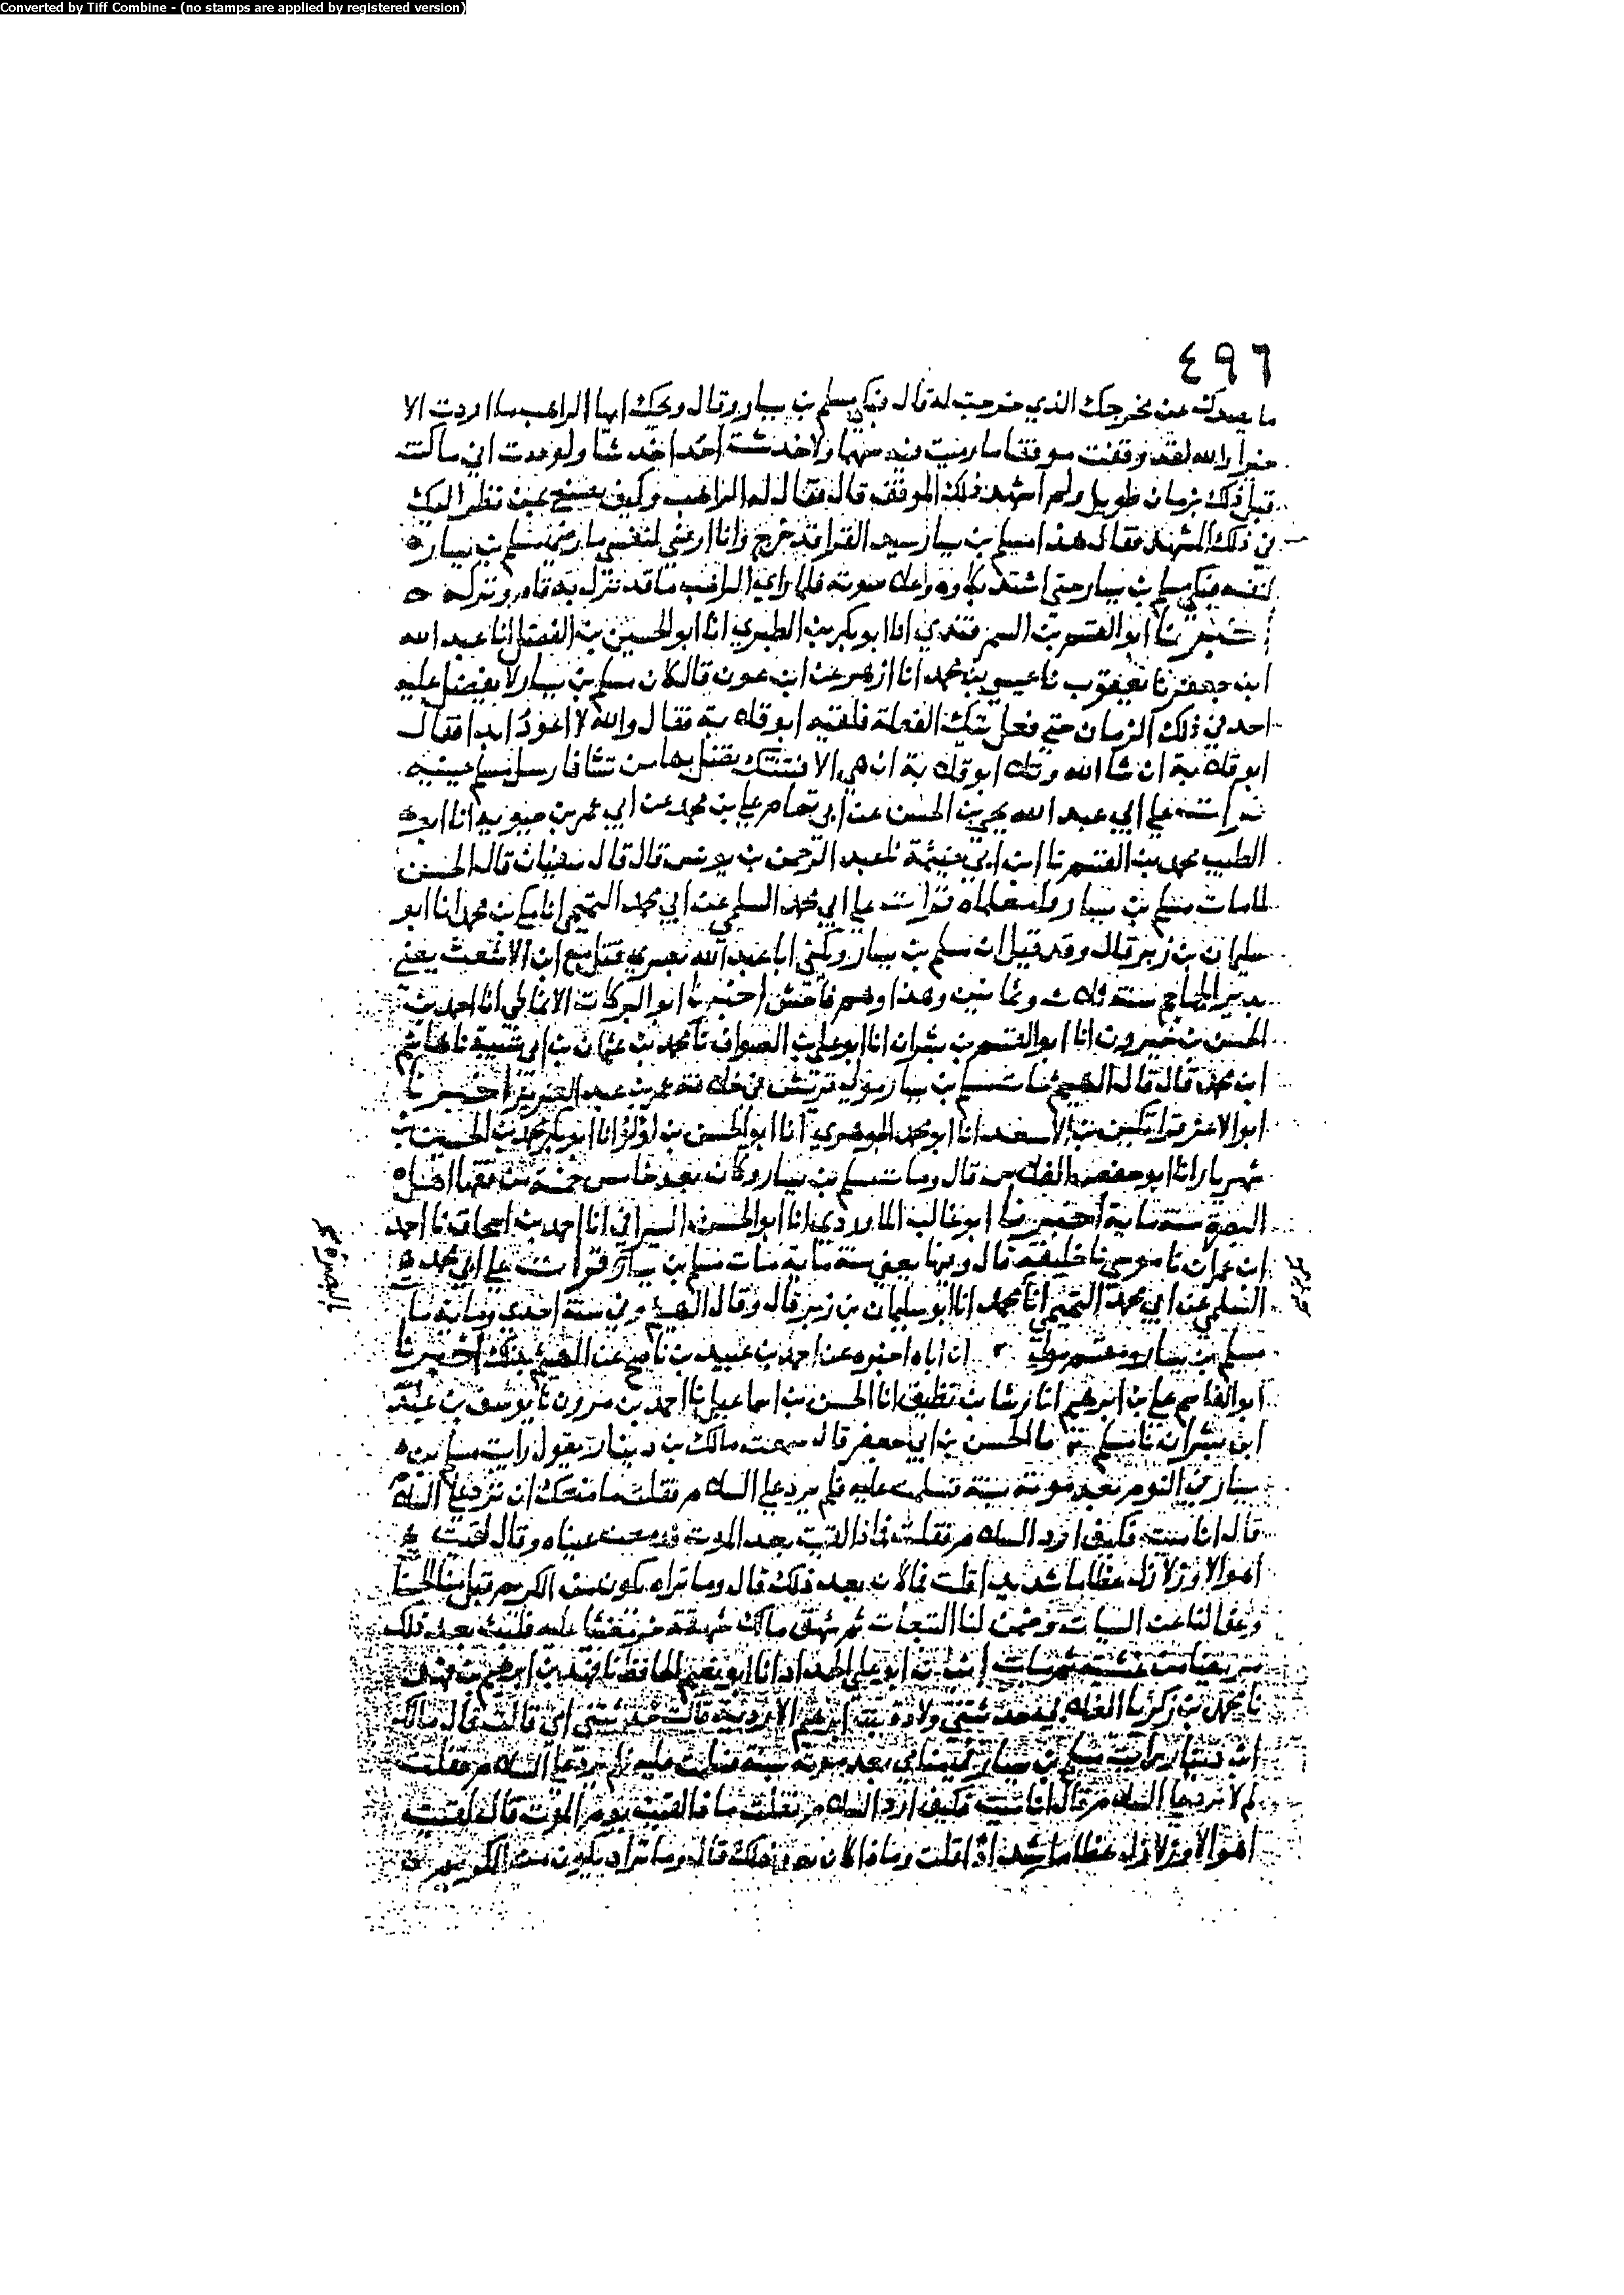 Converted by Tiff Combine - (no stamps are applied by registered version)
٤٩٦
ما يصدك عن مخرجك الذي خرجت له قال فبكى مسلم بن يسار وقال ويحك ايها الراهب ما اردت الا
خيرا والله لقد وقفت موقفا ما رميت فيه سهما ولا خدشت احدا خدشا ولوددت اني مت
قبل ذلك بزمان طويل ولم اشهد ذلك الموقف قال فقال له الراهب وكيف يصنع من نظر اليك
في ذلك المشهد فقال هذا مسلم بن يسار سيد القرا قد خرج وانا ارضى لنفسي ما رضي مسلم بن يسار
لنفسه فبكى مسلم بن يسار حتى اشتد بكاوه وعلا صوته فلما راى الراهب ما قد نزل به قام وتركه
اخبرنا ابو القسم بن السمرقندي انا ابو بكر بن الطبري انا ابو الحسين بن الفضل انا عبد الله
ابن جعفر نا يعقوب نا عيسى بن محمد انا ازهر عن ابن عون قال كان مسلم بن يسار لا يفضل عليه
احد في ذلك الزمان حتى فعل تلك الفعلة فلقيه ابو قلابة فقال والله لا اعود ابدا فقال
ابو قلابة ان شا الله وتلا ابو قلابة ان هي الا فتنتك تضل بها من تشا فارسل مسلم عينيه
قرات على ابي عبد الله يحيى بن الحسن عن ابي تمام علي بن محمد عن ابي عمر بن حيويه انا ابو
الطيب محمد بن القسم نا ابن ابي خيثمة نا عبد الرحمن بن يونس قال قال سفيان قال الحسن
لما مات مسلم بن يسار وامعلماه قرات على ابي محمد السلمي عن ابي محمد التميمي انا مكي بن محمد انا ابو
سليمان بن زبر قال وقد قيل ان مسلم بن يسار ويكنى ابا عبد الله بصري قتل مع ابن الاشعث يعني
بدير الجماجم سنة ثلاث وثمانين وهذا وهم فاحش اخبرنا ابو البركات الانماطي انا احمد بن
الحسن بن خيرون انا ابو القسم بن بشران انا ابو علي بن الصواف نا محمد بن عثمان بن ابي شيبة نا هاشم
ابن محمد قال قال الهيثم مات مسلم بن يسار مولى قريش في خلافة عمر بن عبد العزيز اخبرنا
ابو الاعز قراتكين بن الاسعد انا ابو محمد الجوهري انا ابو الحسن بن لولو انا ابو بكر محمد بن الحسين بن
شهريار انا ابو حفص الفلاس قال ومات مسلم بن يسار وكان يعد خامس خمسة من فقها اهل
البصرة سنة ماية اخبرنا ابو غالب الماوردي انا ابو الحسن السيرافي انا احمد بن اسحاق نا احمد
ابن عمران نا موسى نا خليفة قال وفيها يعني سنة ماية مات مسلم بن يسار قرات على ابي محمد
بالبصرة
السلمي عن ابي محمد التميمي انا محمد انا ابو سليمان بن زبر قال وقال الهيثم وفي سنة احدى وماية مات
مسلم بن يسار ان اباه اخبره عن احمد بن عبيد بن ناصح عن الهيثم بذلك اخبرنا
ابو القاسم علي بن ابرهيم انا رشا بن نظيف انا الحسن بن اسماعيل نا احمد بن مروان نا يوسف بن عبد الله
ابن بشران نا مسلم نا الحسن بن ابي جعفر قال سمعت مالك بن دينار يقول رايت مسلم بن
يسار في النوم بعد موته بسنة فسلمت عليه فلم يرد علي السلام فقلت ما منعك ان ترد علي السلام
قال انا ميت فكيف ارد السلام فقلت فماذا لقيت بعد الموت فدمعت عيناه وقال لقيت
اهوالا وزلازل عظاما شدادا قلت فما كان بعد ذلك قال وما تراه يكون من الكريم قبل منا الحسنات
وعفا لنا عن السيات وضمن لنا التبعات ثم شهق مالك شهقة خر مغشيا عليه فلبث بعد ذلك
مريضا من غشيته ثم مات انبانا ابو علي الحداد انا ابو نعيم الحافظ نا فهد بن ابرهيم بن فهد
نا محمد بن زكريا الغلابي حدثتني ولادة بنت ابرهيم الازدية قالت حدثتني امي قالت قال مالك
ابن دينار رايت مسلم بن يسار في منامي بعد موته بسنة فسلمت عليه فلم يرد علي السلام فقلت
لم لا ترد علي السلام قال انا ميت فكيف ارد السلام فقلت ماذا لقيت يوم الموت قال لقيت
اهوالا وزلازل عظاما شدادا قلت وماذا كان بعد ذلك قال وما تراه يكون من الكريم